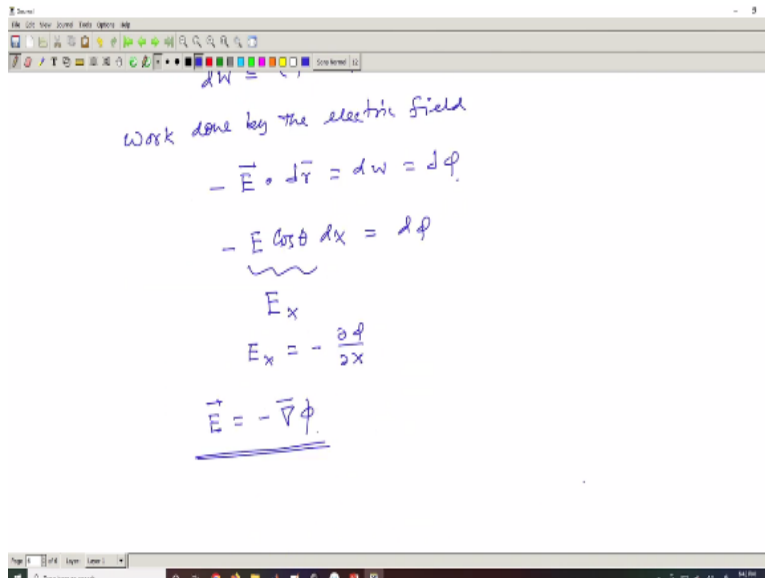 Journal
File Edit View Journal Tools Options Help
Sans Normal 12
dW =
Work done by the electric field
- E⃗ • dr̄ = dw = dφ.
- E Cosθ dx = dφ
E_x
E_x = - ∂φ/∂x
E⃗ = - ∇̄φ.
Page 6 of 6 Layer: Layer 1